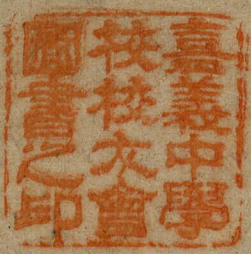 嘉義中學
校校友會
圖書之印